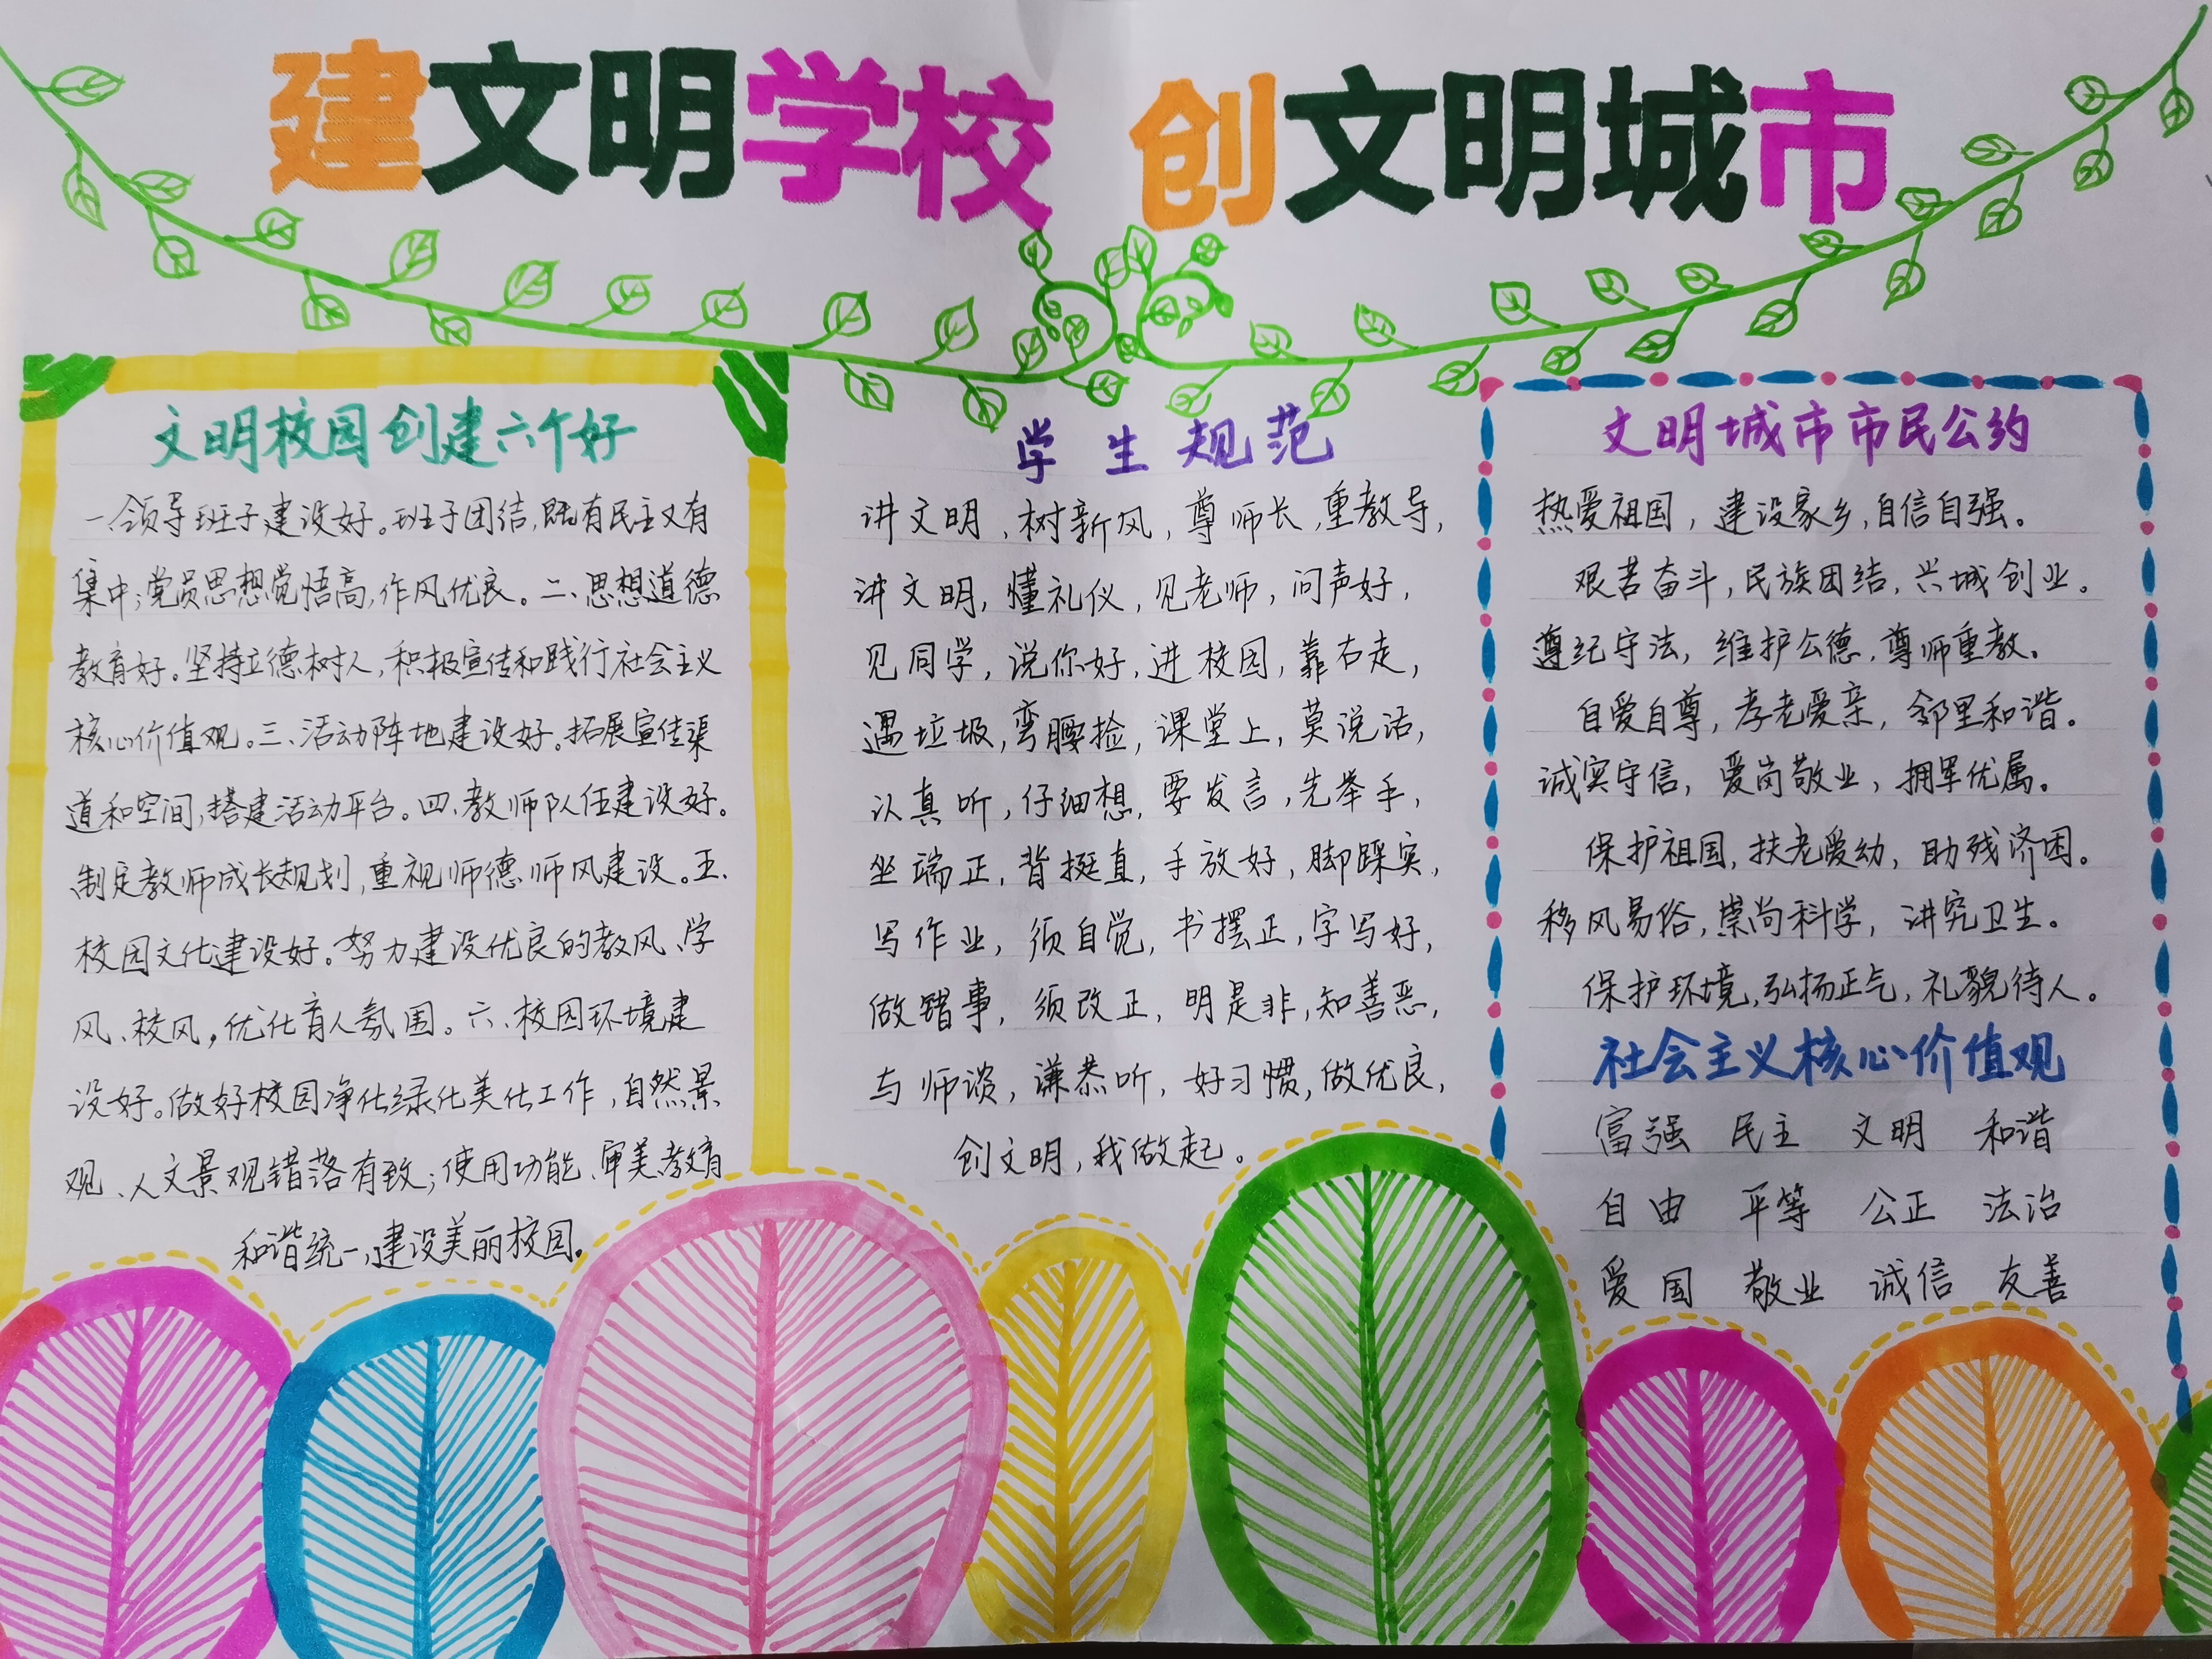 建文明学校 创文明城市
文明校园创建六个好
一、领导班子建设好。班子团结，既有民主又有
集中；党员思想觉悟高，作风优良。二、思想道德
教育好。坚持立德树人，积极宣传和践行社会主义
核心价值观。三、活动阵地建设好。拓展宣传渠
道和空间，搭建活动平台。四、教师队伍建设好。
制定教师成长规划，重视师德师风建设。五、
校园文化建设好。努力建设优良的教风、学
风、校风，优化育人氛围。六、校园环境建
设好。做好校园净化绿化美化工作，自然景
观、人文景观错落有致；使用功能、审美教育
和谐统一，建设美丽校园。
学生规范
讲文明，树新风，尊师长，重教导，
讲文明，懂礼仪，见老师，问声好，
见同学，说你好，进校园，靠右走，
遇垃圾，弯腰捡，课堂上，莫说话，
认真听，仔细想，要发言，先举手，
坐端正，背挺直，手放好，脚踩实，
写作业，须自觉，书摆正，字写好，
做错事，须改正，明是非，知善恶，
与师谈，谦恭听，好习惯，做优良，
创文明，我做起。
文明城市市民公约
热爱祖国，建设家乡，自信自强。
艰苦奋斗，民族团结，兴城创业。
遵纪守法，维护公德，尊师重教。
自爱自尊，孝老爱亲，邻里和谐。
诚实守信，爱岗敬业，拥军优属。
保护祖国，扶老爱幼，助残济困。
移风易俗，崇尚科学，讲究卫生。
保护环境，弘扬正气，礼貌待人。
社会主义核心价值观
富强 民主 文明 和谐
自由 平等 公正 法治
爱国 敬业 诚信 友善